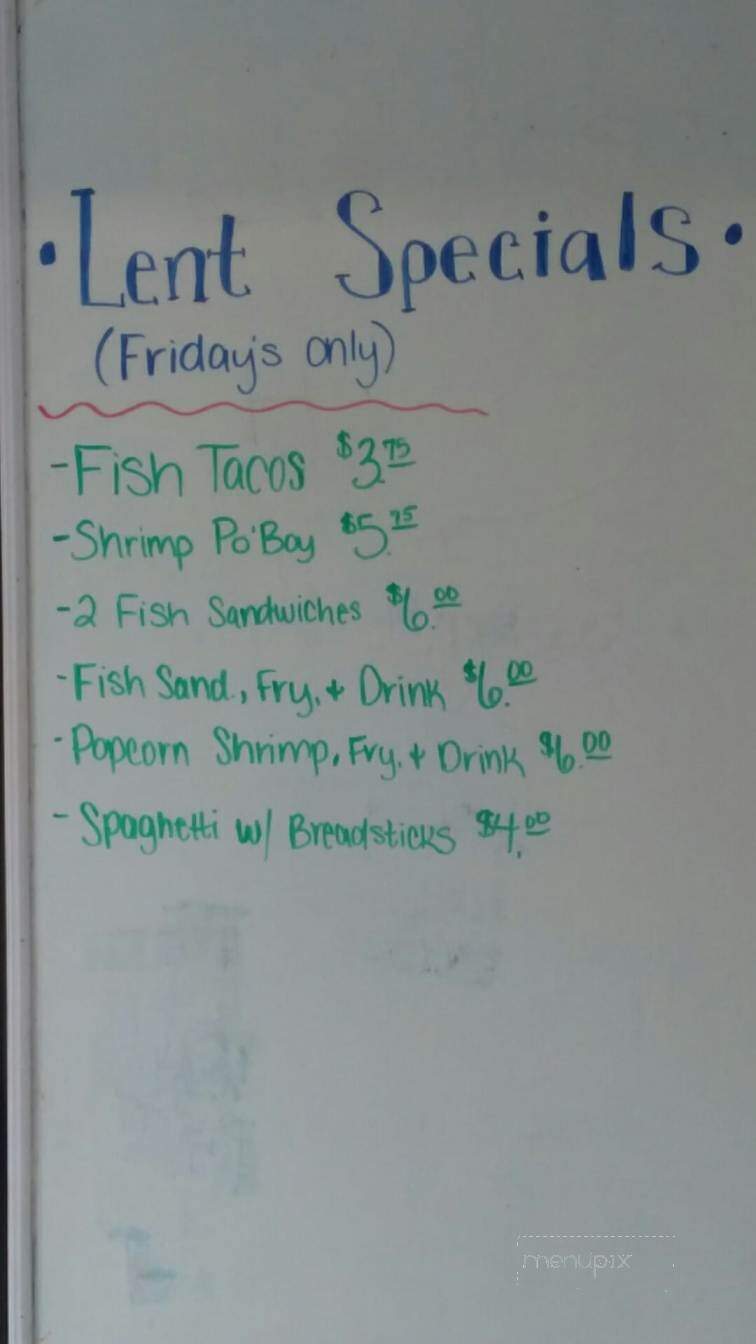 ·Lent Specials·
(Friday's only)
-Fish Tacos $3.75
-Shrimp Po'Boy $5.75
-2 Fish Sandwiches $6.00
-Fish Sand., Fry, + Drink $6.00
-Popcorn Shrimp, Fry, + Drink $6.00
-Spaghetti w/ Breadsticks $4.00
menupix